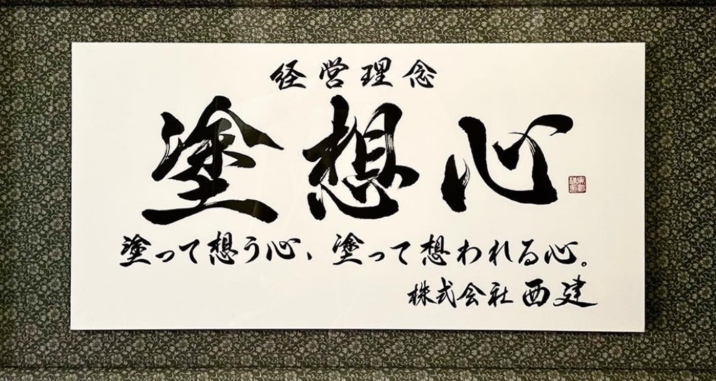 経営理念
塗想心
塗って想う心、塗って想われる心。
株式会社西建